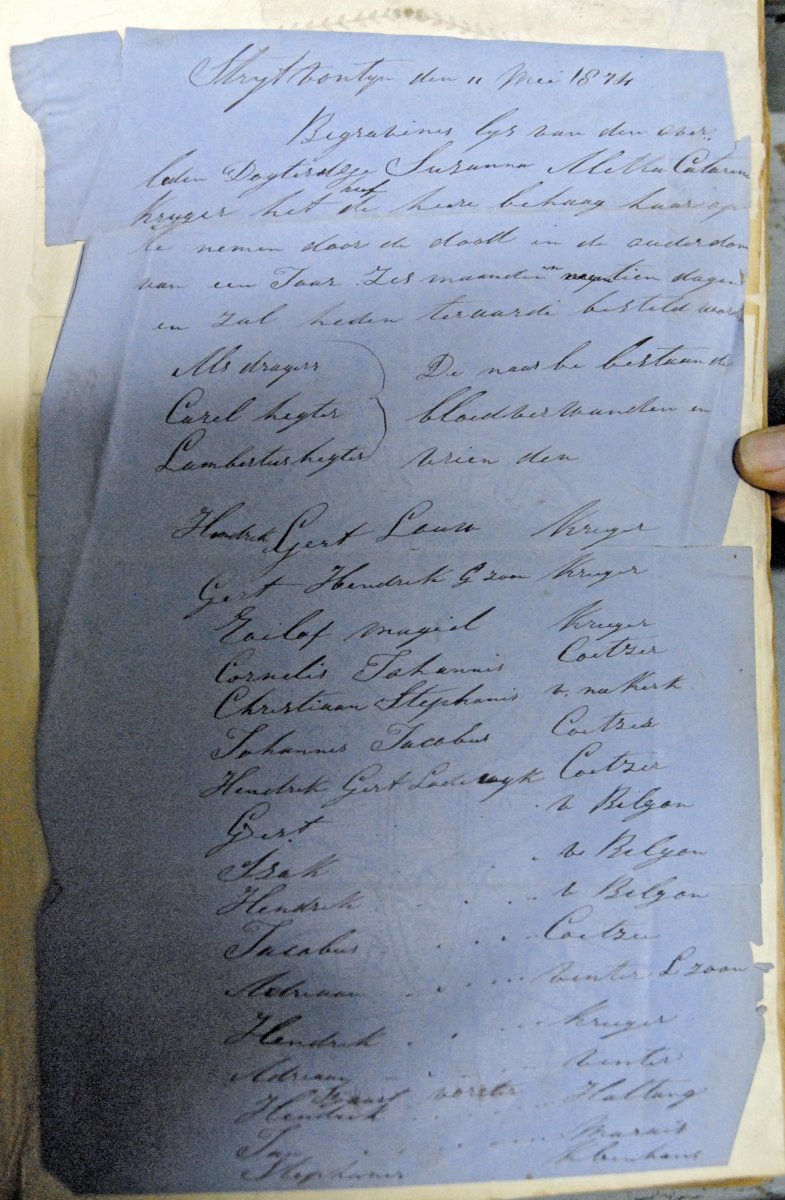 Strytfontyn den 11 Mei 1874
Begravenis lys van den over
leden Dogterdge Suzanna Aletta Catarina
Kruger het heef de heere behaag haar op
te nemen door de dood in de ouderdom
van een Jaar Zes maanden en tien dagen
en zal heden teraarde besteld word
Als dragers
Carel hegter
Lambertus hegter
De naarbe bestaande
bloedverwanden en
vrien den
Hendrik Gert Louw Kruger
Gert Hendrik G zoon Kruger
Roilof magiel Kruger
Cornelis Johannis Coetzer
Christiaan Stephanis v. nieKerk
Johannes Jacobus Coetzer
Hendrik Gert Lodewyk Coetzer
Gert . . . v Bilyon
Izak . . . v Bilyon
Hendrik . . . . v Bilyon
Jacobus . . . . . Coetzee
Adriaan . . . . venter L zoon
Hendrik . . . . Kruger
Adriaan . . . venter
vorster
Hendrik . . . . Hattung
Jan . . . . . Marais
Stephanis